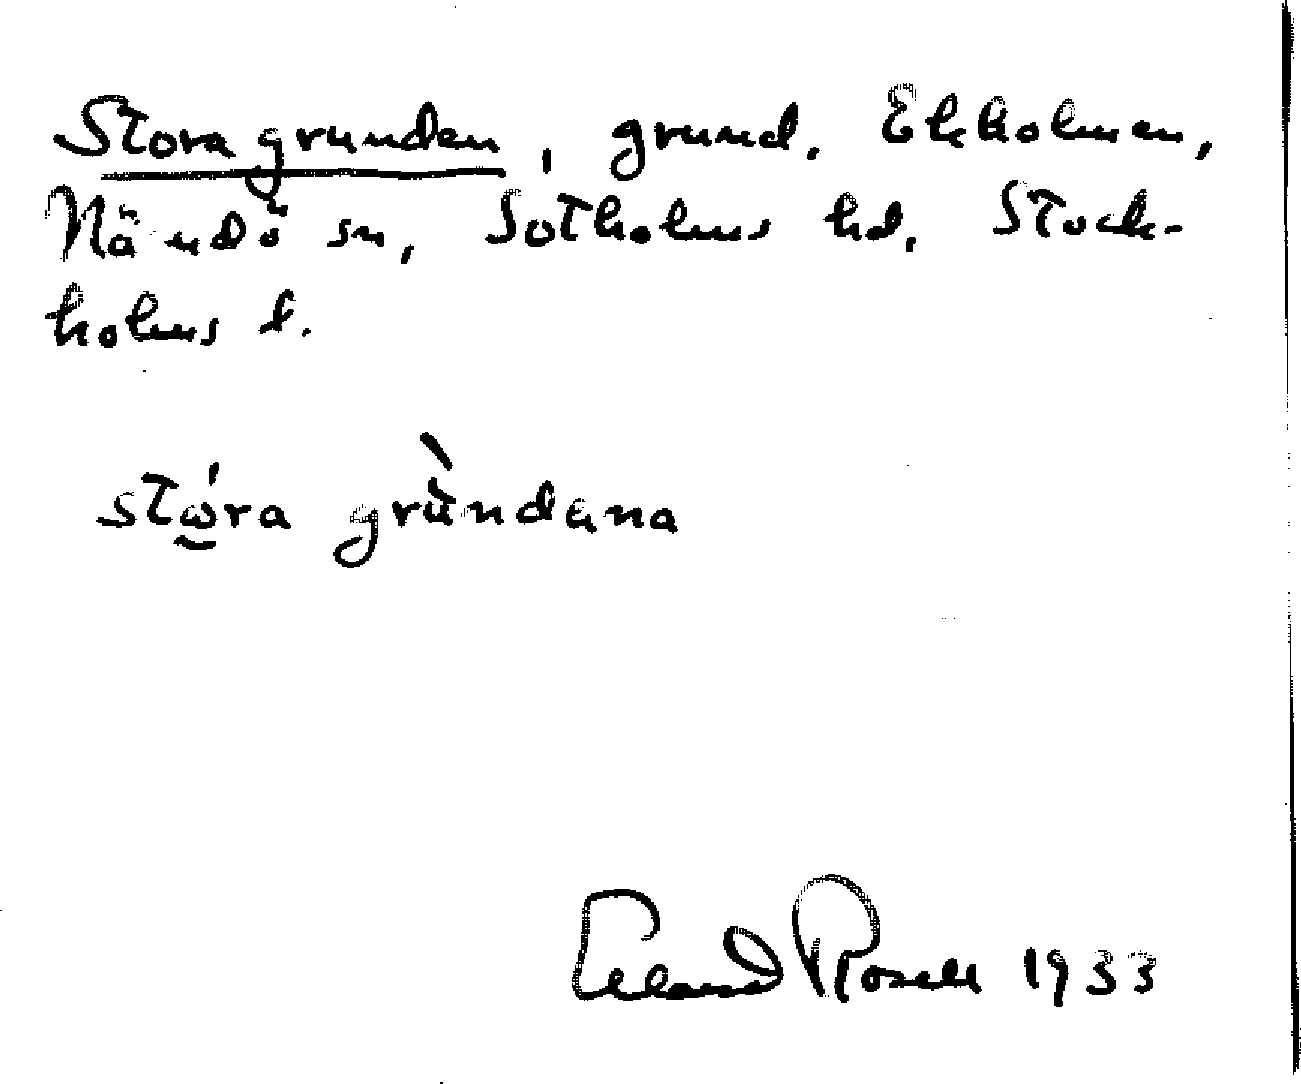 Stora grunden, grund. Ekholmen,
Nämdö sn, Sotholms hd. Stock-
holms l.
stώ̱ra grùndana
Erland Rosell 1933